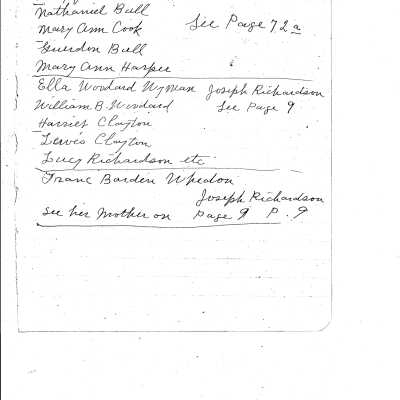 Nathaniel Bull
Mary Ann Cook See Page 72a
Guerdon Bull
Mary Ann Harper
Ella Woodard Wyman Joseph Richardson
William B. Woodard See Page 9
Harriet Clayton
Lewis Clayton
Lucy Richardson etc
Franc Barden Whedon
Joseph Richardson
See her Mother on Page 9 P. 9